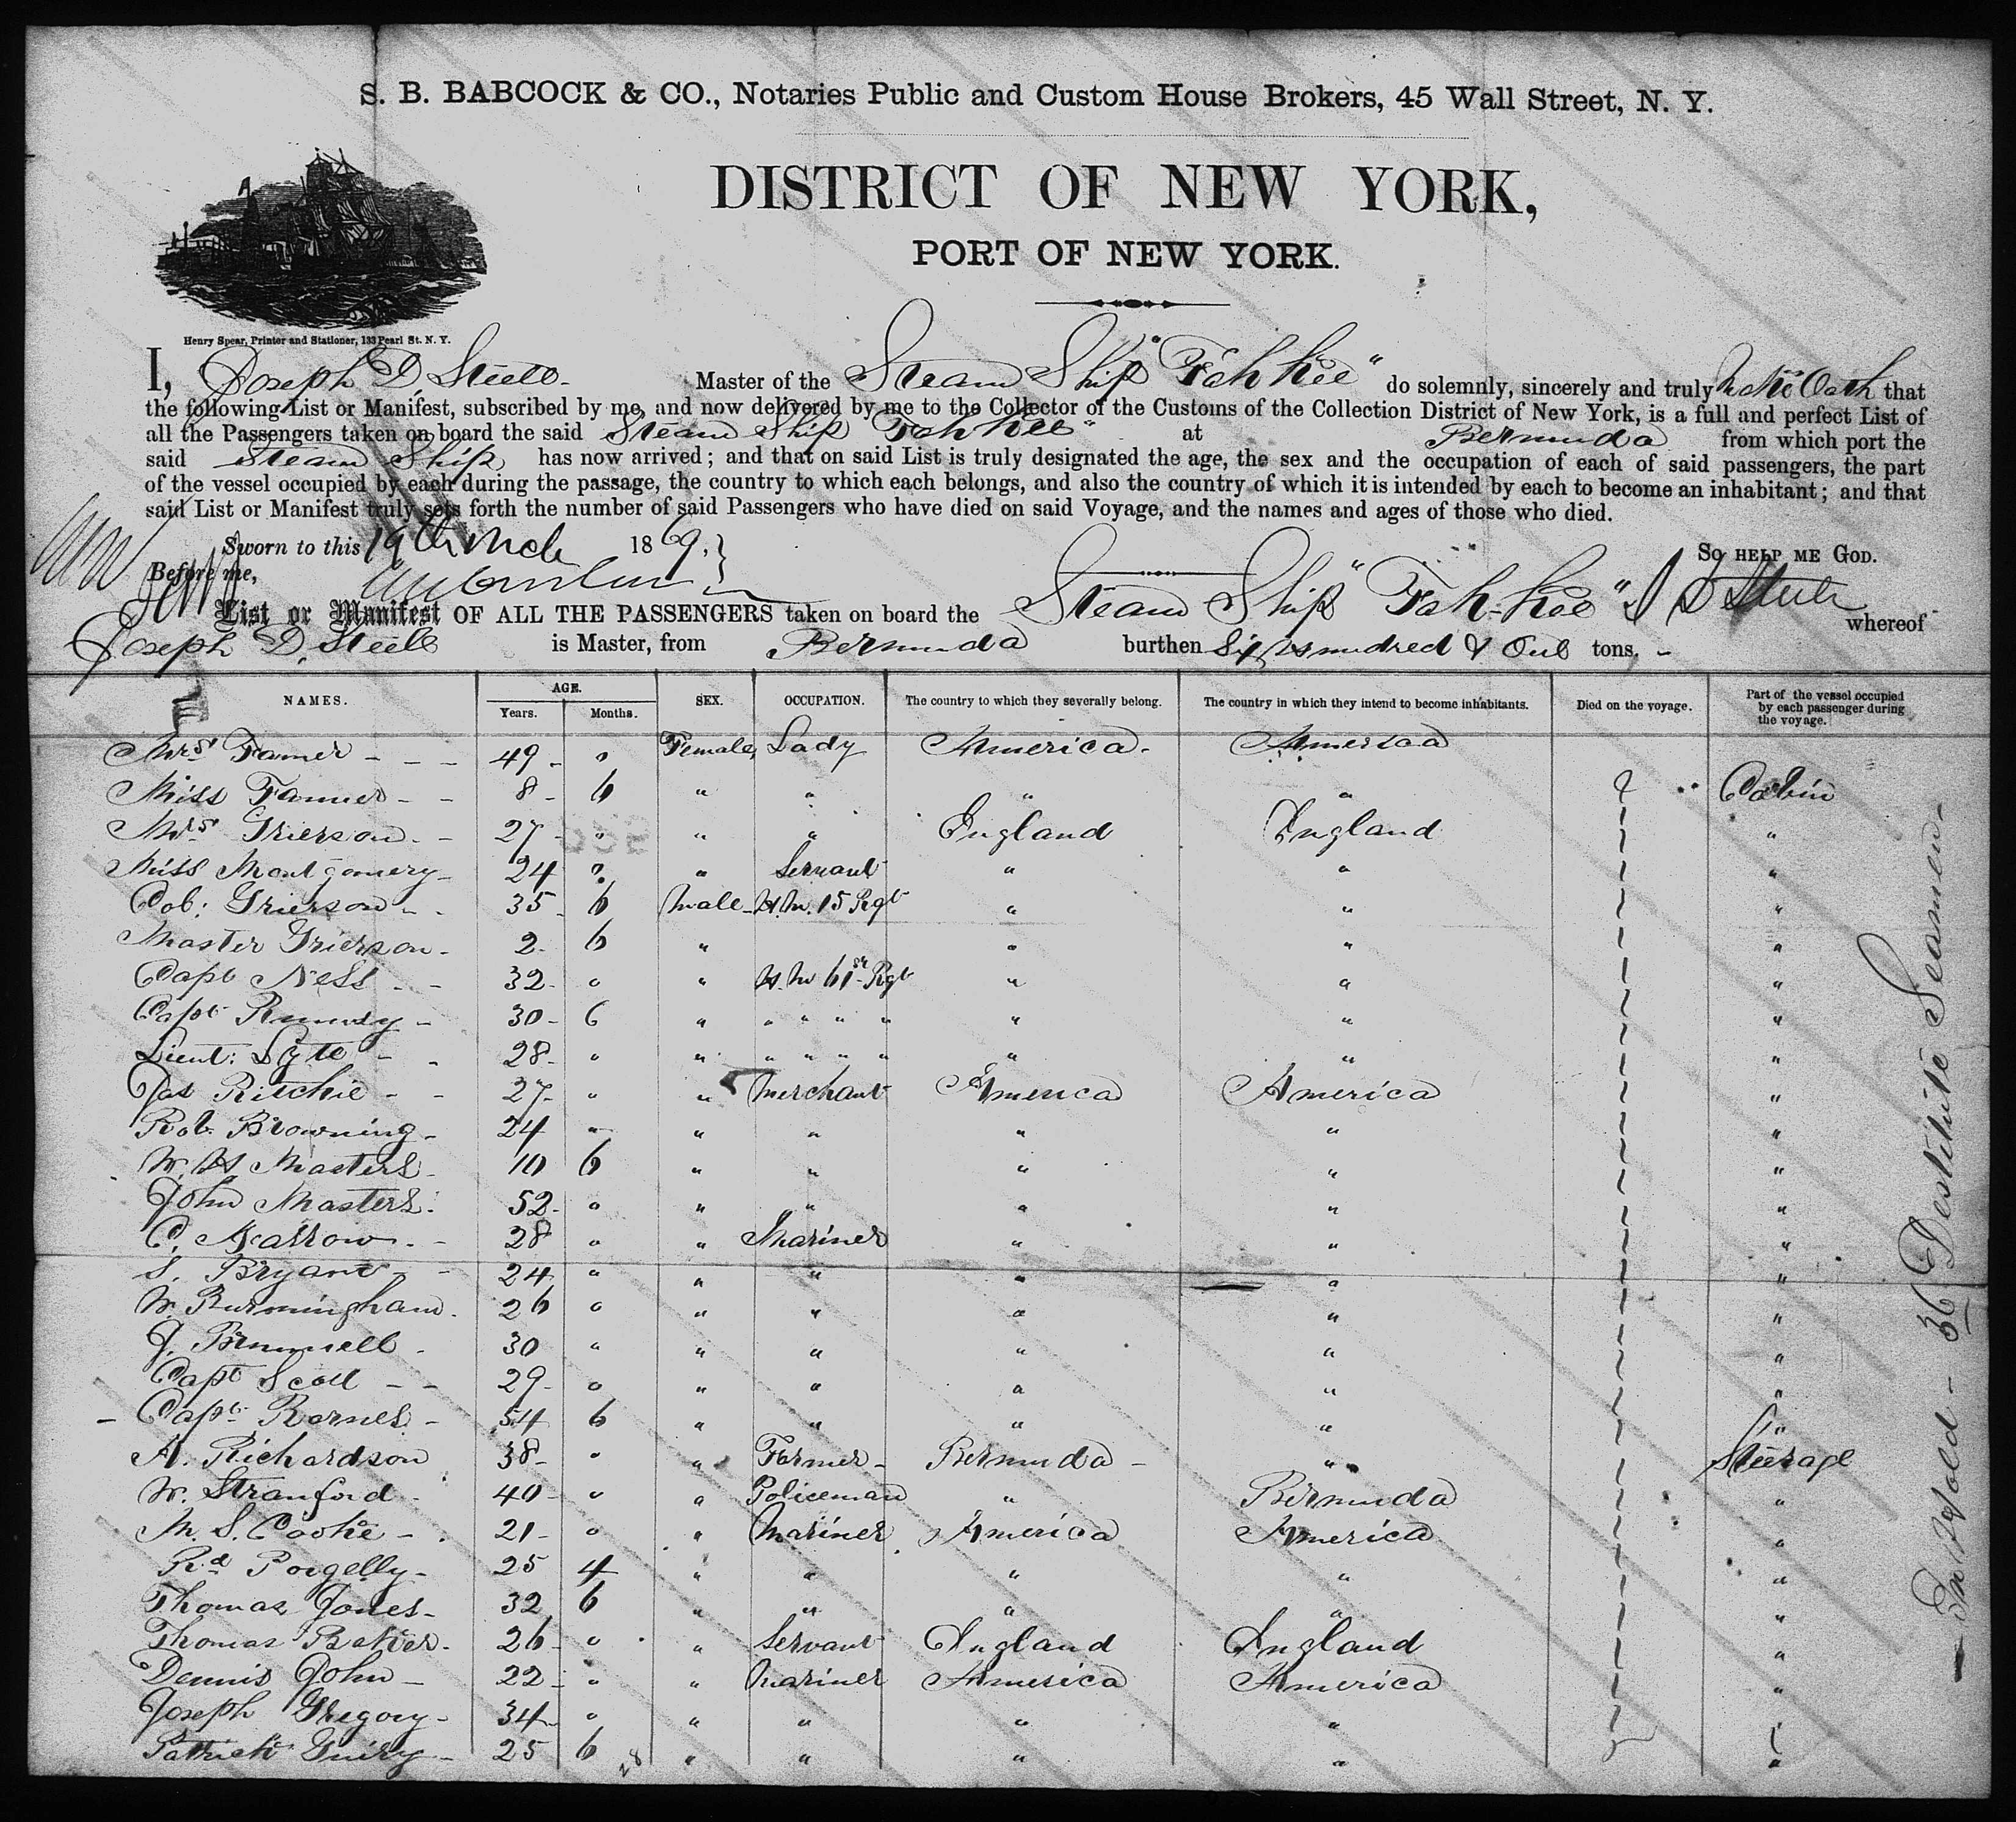 S. B. BABCOCK & CO., Notaries Public and Custom House Brokers, 45 Wall Street, N. Y.
DISTRICT OF NEW YORK,
PORT OF NEW YORK.
Henry Spear, Printer and Stationer, 133 Pearl St. N. Y.
I, Joseph D Steele Master of the Steam Ship "Fah Kee" do solemnly, sincerely and truly make Oath that
the following List or Manifest, subscribed by me, and now delivered by me to the Collector of the Customs of the Collection District of New York, is a full and perfect List of
all the Passengers taken on board the said Steam Ship Fah Kee" at Bermuda from which port the
said Steam Ship has now arrived; and that on said List is truly designated the age, the sex and the occupation of each of said passengers, the part
of the vessel occupied by each during the passage, the country to which each belongs, and also the country of which it is intended by each to become an inhabitant; and that
said List or Manifest truly sets forth the number of said Passengers who have died on said Voyage, and the names and ages of those who died.
Sworn to this 19th Mch 1869. So HELP ME GOD.
Before me,
List or Manifest OF ALL THE PASSENGERS taken on board the Steam Ship "Fah-Kee" J D Steele whereof
Joseph D, Steele is Master, from Bermuda burthen Six Hundred & One tons.
NAMES. AGE. Years. Months. SEX. OCCUPATION. The country to which they severally belong. The country in which they intend to become inhabitants. Died on the voyage. Part of the vessel occupied by each passenger during the voyage.
Mrs 49 " Female Lady America America
Miss 8 6 " " " " Cabin
Mrs Grierson 27 " " " England England "
Miss Montgomery 24 " " Servant " " "
Col: Grierson 35 6 Male H.M. 15 Rgt " " "
Master Grierson 2 6 " " " "
Capt Ness 32 " " H.M 61st Rgt " " "
Capt 30 6 " " " " " " " "
Lieut: Lyte 28 " " " " " " " " "
Jas Ritchie 27 " " Merchant America America "
Rob Browning 24 " " " " " "
W. H Masters 10 6 " " " " "
John Masters 52 " " " " " "
C. 28 " " Mariner " " "
S. Bryant 24 " " " " " "
W. Burmingham 26 " " " " " "
J. 30 " " " " " "
Capt Scott 29 " " " " " "
Capt Barnes 54 6 " " " " "
A. Richardson 38 " " Farmer Bermuda " Steerage
W. Stranford 40 " " Policeman " Bermuda "
M S. Cooke 21 " " Mariner America America "
Rd 25 4 " " " " "
Thomas Jones 32 6 " " " " "
Thomas Baker 26 " " Servant England England "
Dennis John 22 " " Mariner America America "
Joseph Gregory 34 " " " " "
Patrick 25 6 " " " " "
28
36 Destitute Seamen